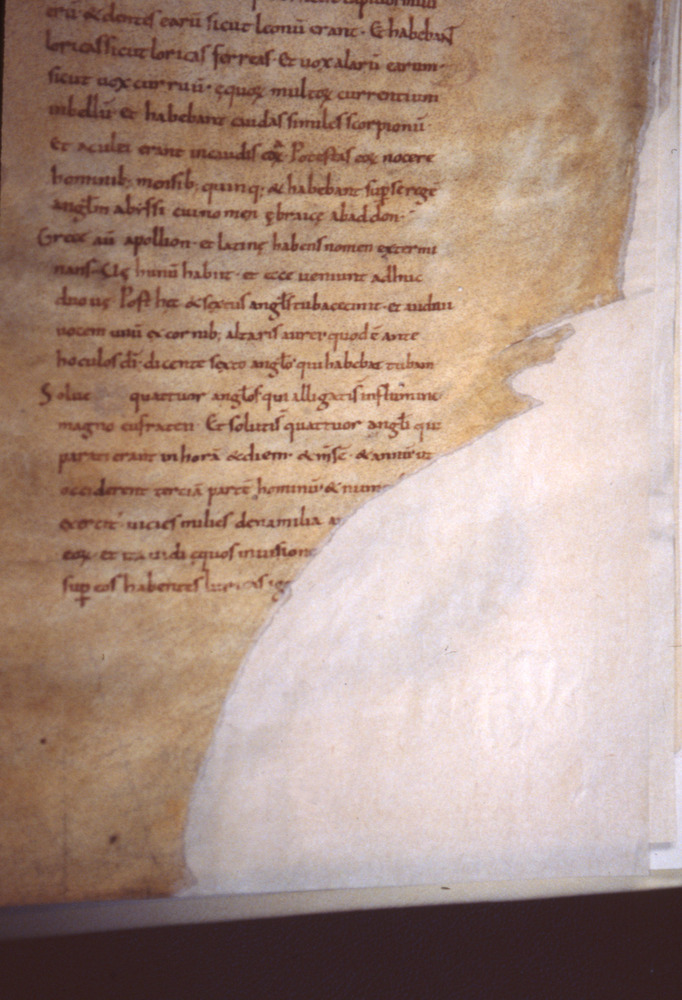 erū · & dentes earū sicut leonū erant · Et habebant
loricas sicut loricas ferreas · Et vox alarū earum ·
sicut vox curruū · equoꝝ multoꝝ currentium
inbellū · Et habebant caudas similes scorpionū ·
Et aculei erant incaudis eoꝝ · Potestas eoꝝ nocere
hominib; mensib; quinq; & habebant sup se regē
anglm abyssi cui nomen ebraice abaddon ·
Grece aū apollion · et latine habens nomen extermi
nans · Ue hunū habiit · et ecce veniunt adhuc
duo ue Post hec & sextus angls tuba cecinit · et audivi
vocem unū ex cornib; altaris aurei quod ē ante
hoculos di · dicente sexto anglo qui habebat tubam
Solve quattuor anglos qui alligati s influmine
magno eufraten · Et soluti s quattuor angli qui
parati erant in hora & diem · & mse · & annū ut
occiderent terciā partē hominū · & num
exercit vicies milies dena milia
eoꝝ · et ita vidi equos in visione
sup eos habentes loricas ig